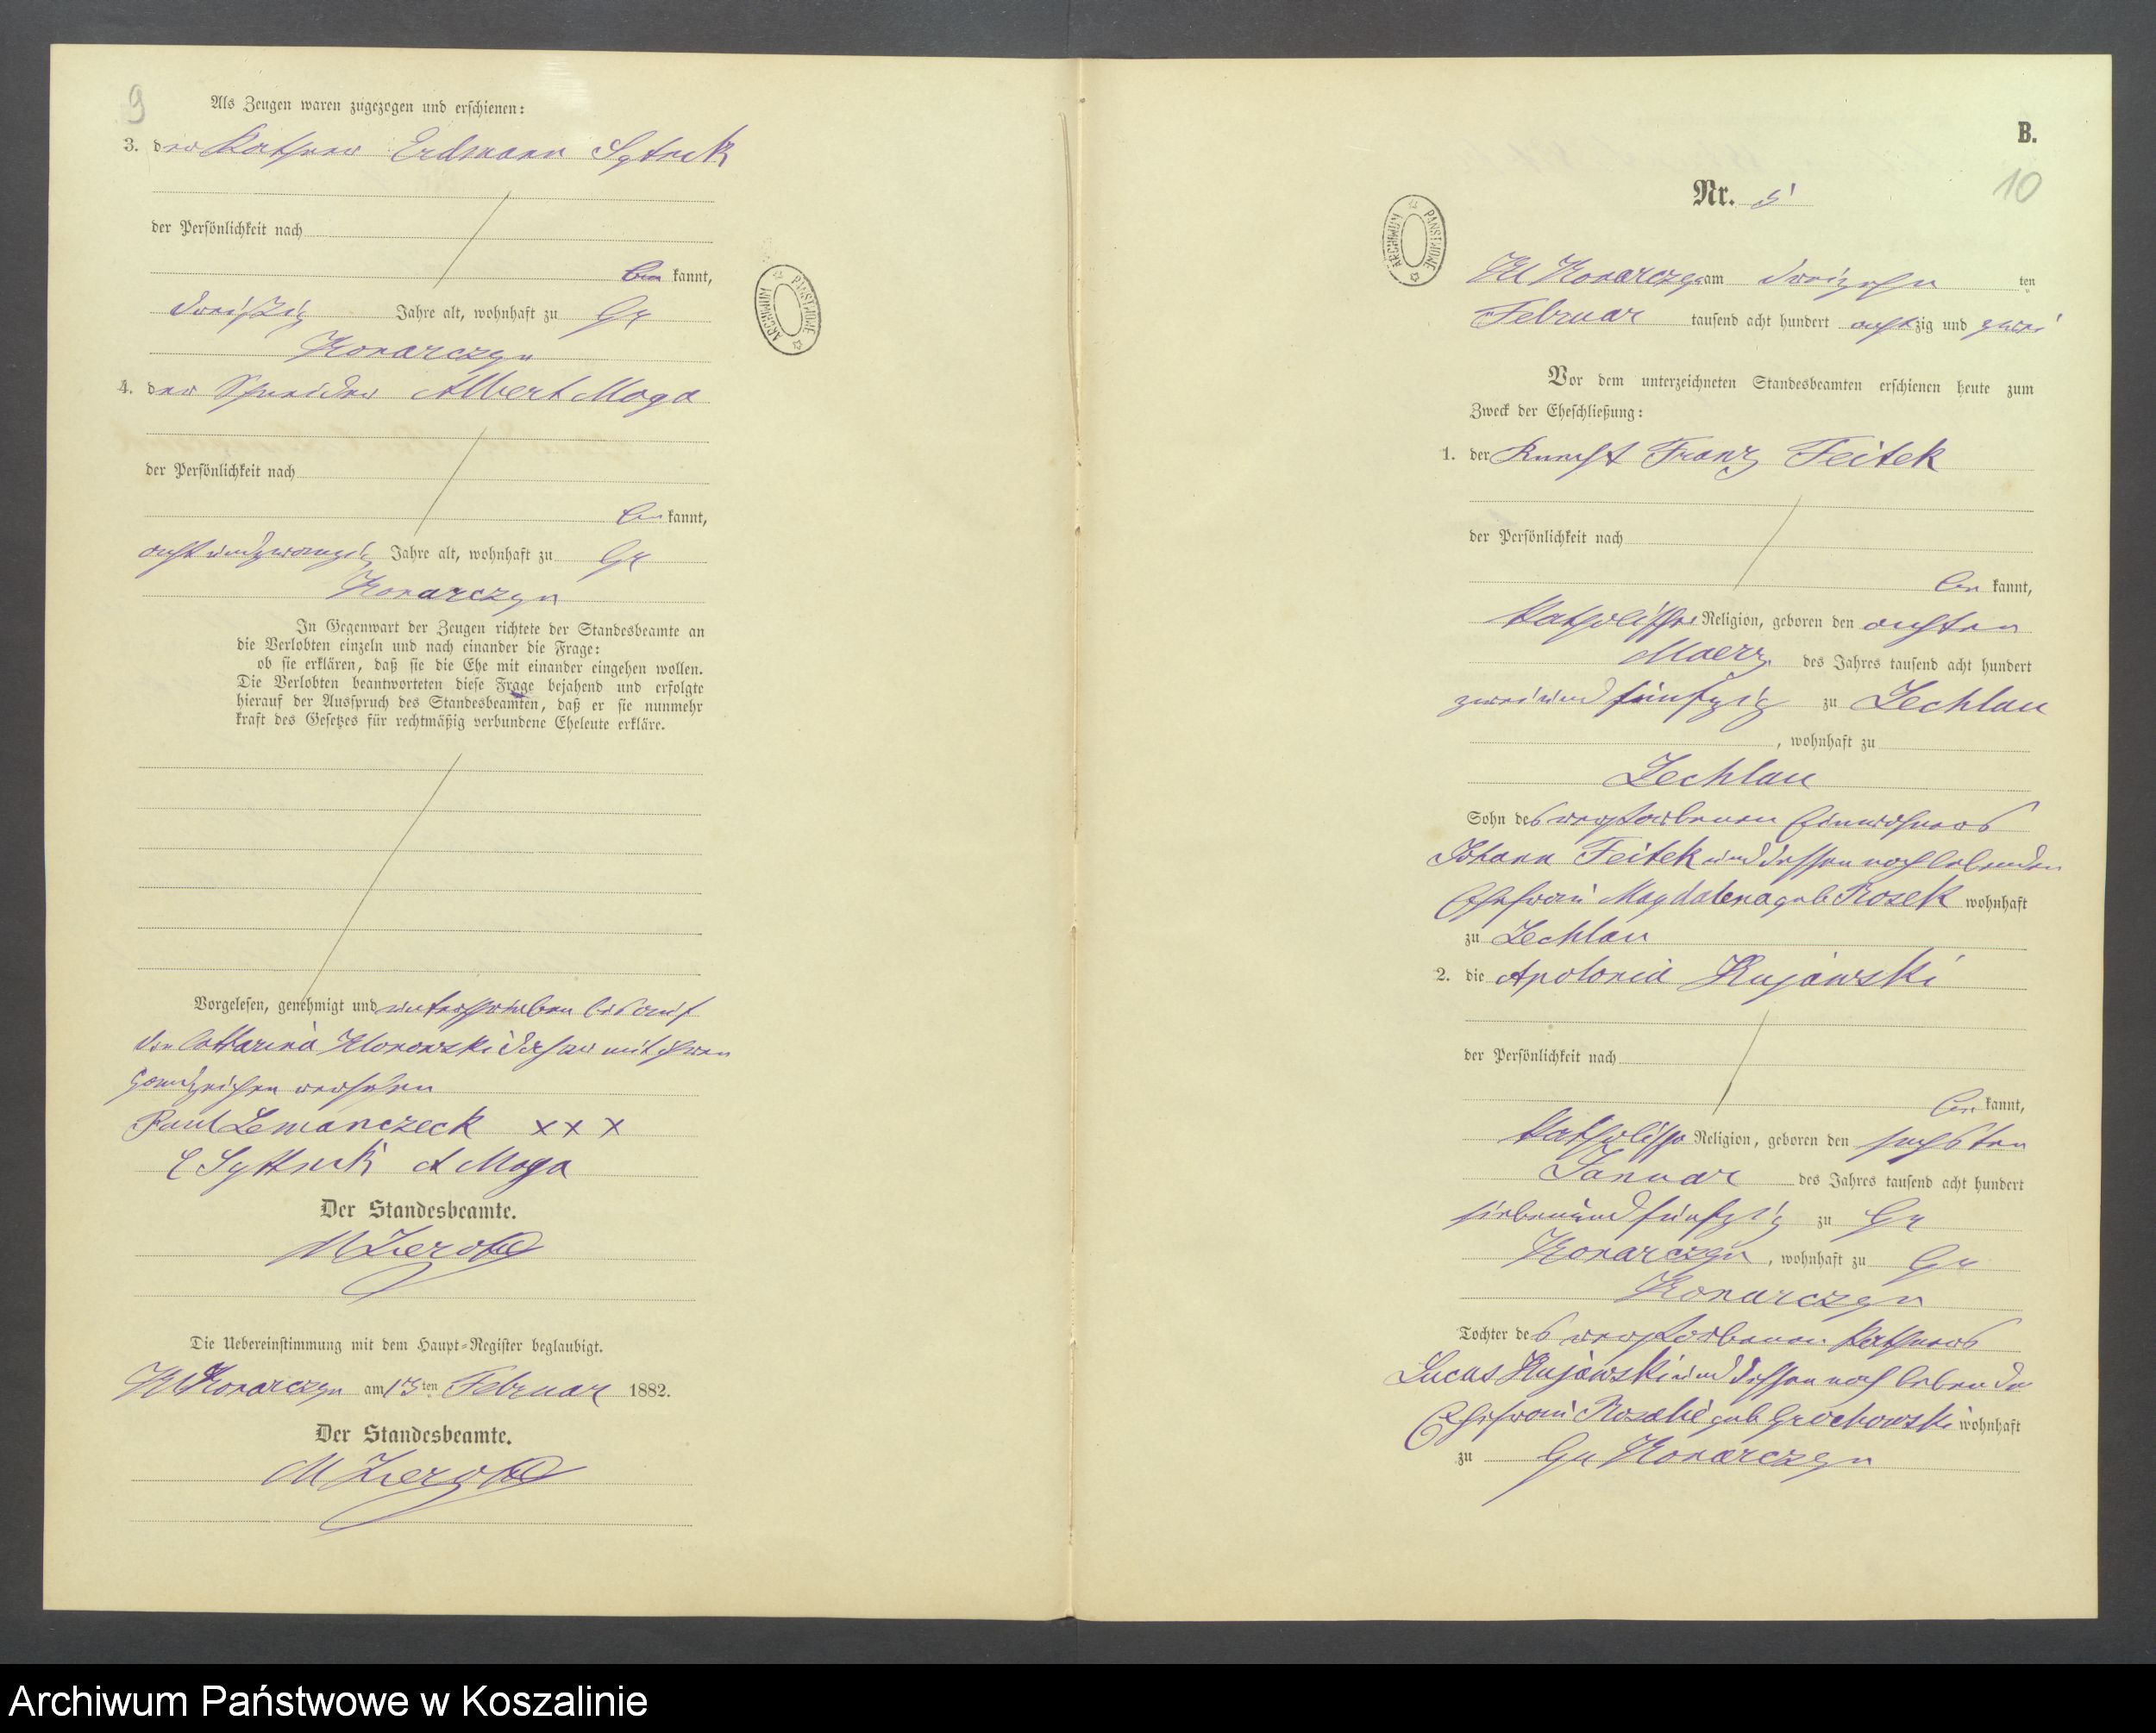 9
Als Zeugen waren zugezogen und erschienen:
3. der Kathner Erdmann Sytrek
der Persönlichkeit nach
be kannt,
dreißig Jahre alt, wohnhaft zu Gr
Konarczyn
4. der Schneider Albert Moga
der Persönlichkeit nach
be kannt,
acht und zwanzig Jahre alt, wohnhaft zu Gr
Konarczyn
In Gegenwart der Zeugen richtete der Standesbeamte an
die Verlobten einzeln und nach einander die Frage:
ob sie erklären, daß sie die Ehe mit einander eingehen wollen.
Die Verlobten beantworteten diese Frage bejahend und erfolgte
hierauf der Ausspruch des Standesbeamten, daß er sie nunmehr
kraft des Gesetzes für rechtmäßig verbundene Eheleute erkläre.
Vorgelesen, genehmigt und unterschrieben bis auf
die Catharina Klonowski dieselbe mit ihren
Handzeichen versehen
Paul Lemanczeck x x x
E Syttrek A Moga
Der Standesbeamte.
Die Uebereinstimmung mit dem Haupt-Register beglaubigt.
Kl Konarczyn am 13ten Februar 1882.
Der Standesbeamte.
ARCHIWUM PAŃSTWOWE
B.
10
Nr. 5
ARCHIWUM PAŃSTWOWE
Kl Konarczyn am dreizehn ten
Februar tausend acht hundert achtzig und zwei
Vor dem unterzeichneten Standesbeamten erschienen heute zum
Zweck der Eheschließung:
1. der Knecht Franz Feitek
der Persönlichkeit nach
be kannt,
katholischer Religion, geboren den achten
Maerz des Jahres tausend acht hundert
zwei und fünfzig zu Zechlau
, wohnhaft zu
Zechlau
Sohn des verstorbenen Einwohners
Johann Feitek und dessen noch lebenden
Ehefrau Magdalena geb Rosek wohnhaft
zu Zechlau
2. die Apolonia Kujawski
der Persönlichkeit nach
be kannt,
katholische Religion, geboren den sechsten
Januar des Jahres tausend acht hundert
sieben und fünfzig zu Gr
Konarczyn, wohnhaft zu Gr
Konarczyn
Tochter des verstorbenen Kathners
Lucas Kujawski und dessen noch lebende
Ehefrau Rosalie geb Grochowski wohnhaft
zu Gr Konarczyn
Archiwum Państwowe w Koszalinie